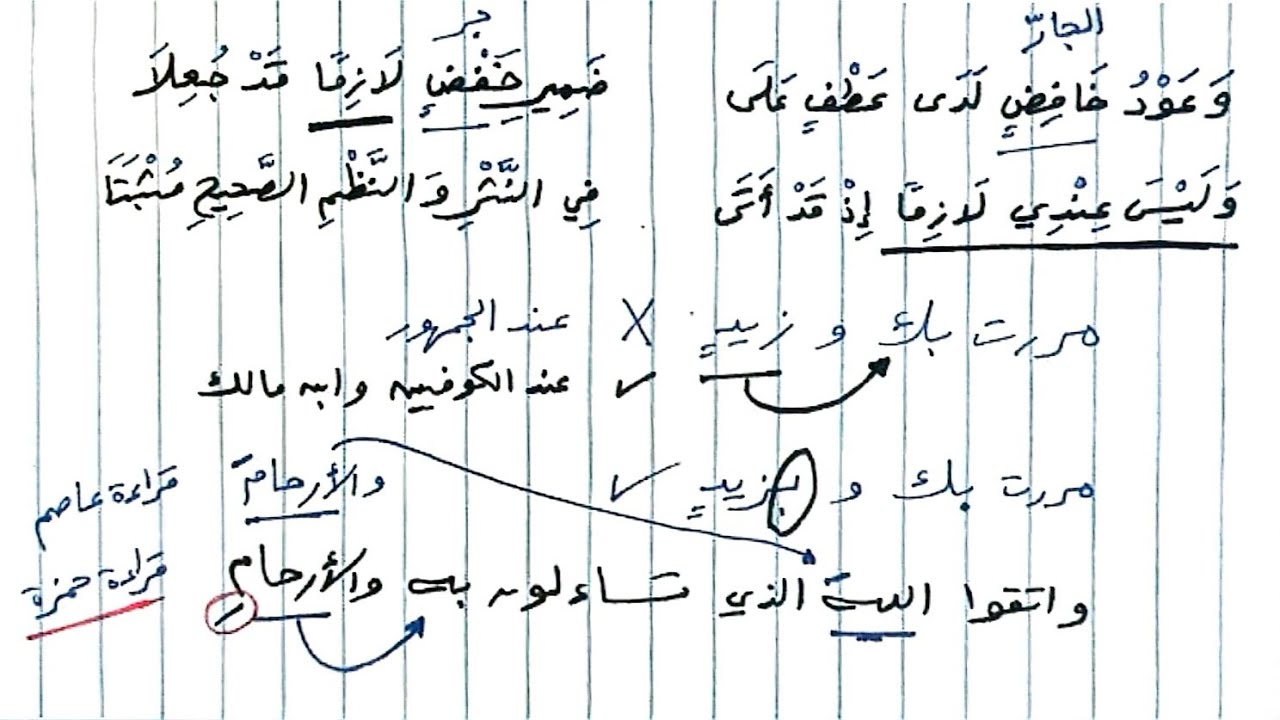 الجارّ
جر
وَعَوْدُ خَافِضٍ لَدَى عَطْفٍ عَلَى ضَمِيرِ خَفْضٍ لَازِمًا قَدْ جُعِلَا
وَلَيْسَ عِنْدِي لَازِمًا إِذْ قَدْ أَتَى فِي النَّثْرِ وَالنَّظْمِ الصَّحِيحِ مُثْبَتَا
مررت بك و زيدٍ X عند الجمهور
✓ عند الكوفيين وابن مالك
مررت بك و بزيدٍ ✓ والأرحامَ قراءة عاصم
واتقوا اللهَ الذي تساءلون به والأرحامِ قراءة حمزة